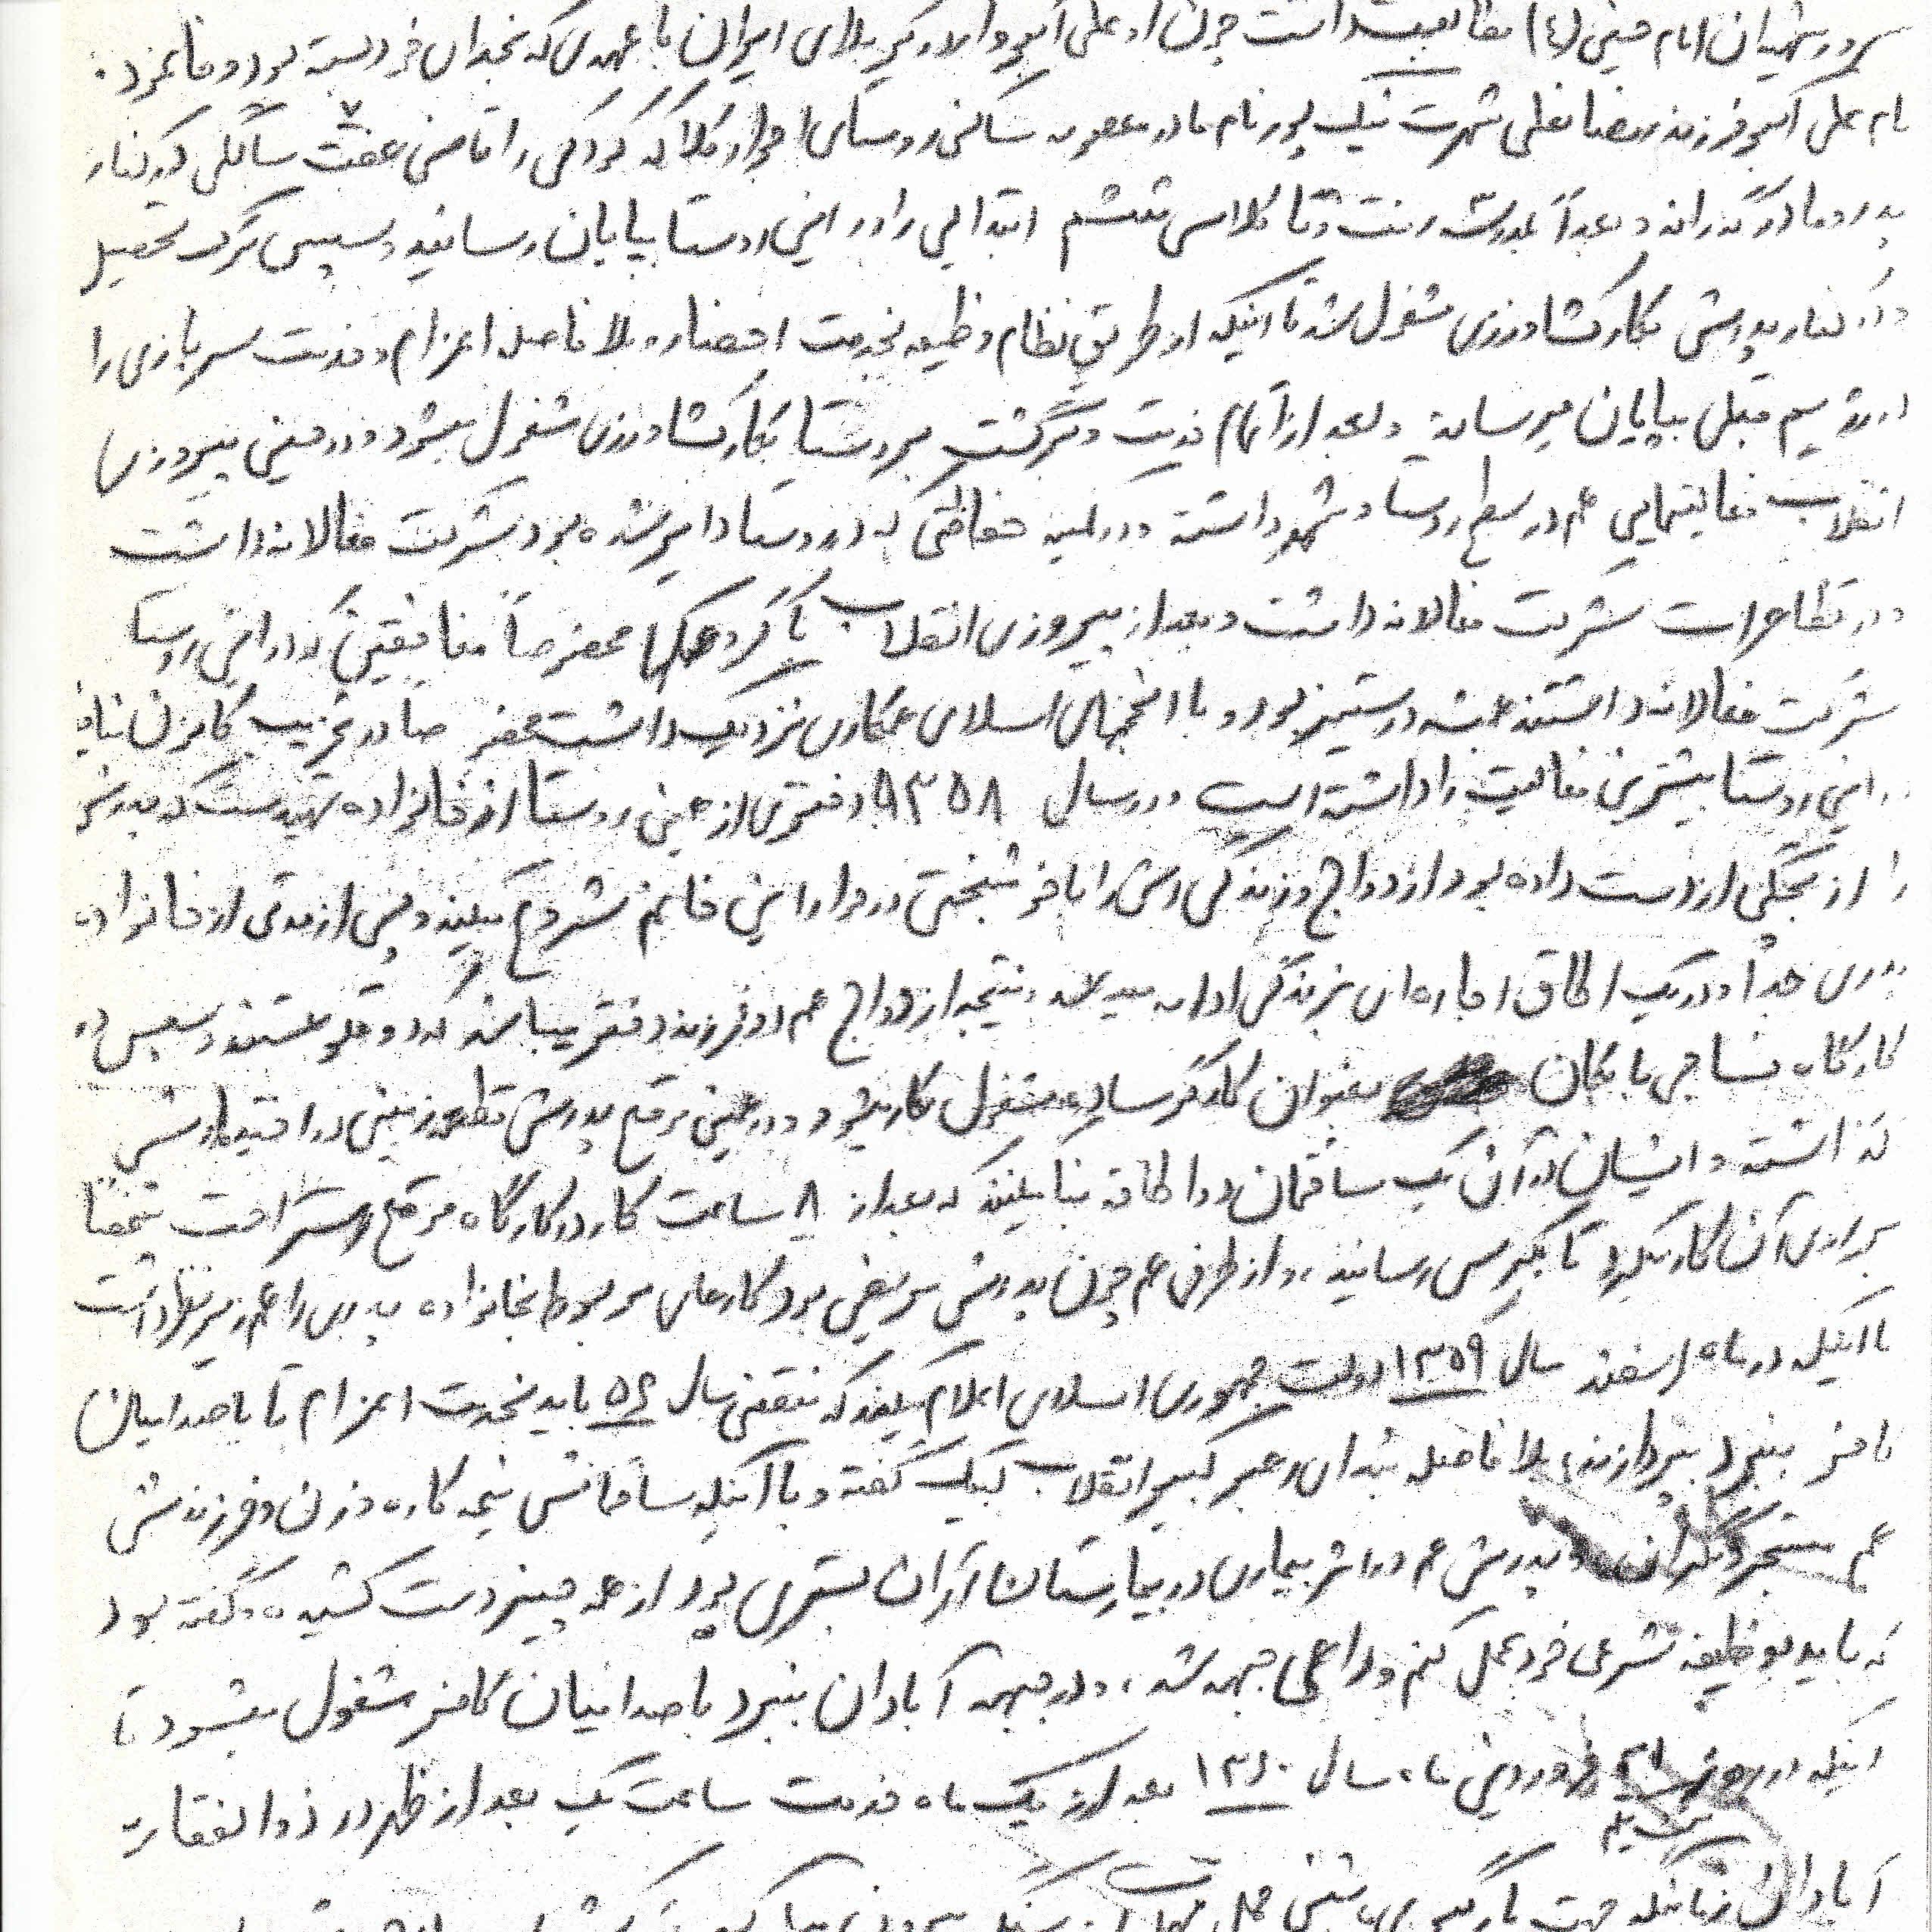 سرور شهیدان امام حسین (ع) مطابقت داشت چون او علی اکبر و الا در کربلای ایران با عهدی که بخدای خود بسته بود وفا نمود.
نام علی اکبر فرزند رمضانعلی شهرت نیک پور نام مادر معصومه ساکن روستای که کودکی را تا سن هفت سالگی در کنار
پدر و مادر گذرانده و بعداً بمدرسه رفت و تا کلاس ششم ابتدایی را در این روستا بپایان رسانید و سپس ترک تحصیل
و در کنار پدرش بکار کشاورزی مشغول شد تا اینکه از طریق نظام وظیفه بخدمت احضار و بلا فاصله اعزام و خدمت سربازی را
در رژیم قبل بپایان میرساند و بعد از اتمام خدمت و برگشت بروستا بکار کشاورزی مشغول میشود و در حین پیروزی
انقلاب فعالیتهایی هم در سطح روستا و شهر داشته و در کمیته حفاظتی که در روستا دایر شده بود شرکت فعالانه داشت
و در تظاهرات شرکت فعالانه داشت و بعد از پیروزی انقلاب با گروهکها مخصوصاً منافقین که در این روستا
شرکت فعالانه داشتند همیشه در ستیز بود و با انجمنهای اسلامی همکاری نزدیک داشت مخصوصاً در تخریب کانون
این روستا بیشترین فعالیت را داشته است و در سال ۱۳۵۸ دختری از همین روستا از خانواده که پدرش
را از بچگی از دست داده بود ازدواج و زندگی اش را با خوشبختی در جوار این خانم شروع میکند و پس از مدتی از خانواده
پدری جدا و در یک اطاق اجاره ای بزندگی ادامه میدهد و نتیجه ازدواج هم دو فرزند دختر میباشد که دوقلو هستند و سپس در
کارگاه نساجی بعنوان کارگر ساده مشغول بکار میشود و در همین موقع پدرش قطعه زمینی در اختیارش
گذاشته و ایشان در آن یک ساختمان دو اطاقه بنا میکند که بعد از ۸ ساعت کار در کارگاه موقع استراحت شخصاً
بر روی آن کار میکرد تا بکرسی رسانید، و از طرفی هم چون پدرش مریض بود کارهای مربوط بخانواده پدری را هم زیر نظر داشت
تا اینکه در ماه اسفند سال ۱۳۵۹ دولت جمهوری اسلامی اعلام میکند که منقضی سال ۵۶ باید بخدمت اعزام تا با صدامیان
کافر بنبرد بپردازند، بلا فاصله بندای رهبر کبیر انقلاب لبیک گفته و با اینکه ساختمانش نیمه کاره و زن و فرزندش
هم و پدرش هم در اثر بیماری در بیمارستان آران بستری بود از همه چیز دست کشیده و گفته بود
که باید بوظیفه شرعی خود عمل کنم و راهی جبهه شد، و در جبهه آبادان بنبرد با صدامیان کافر مشغول میشود تا
اینکه در روز فروردین ماه سال ۱۳۶۰ بعد از یک ماه خدمت ساعت یک بعد از ظهر در ذوالفقاریه
آبادان